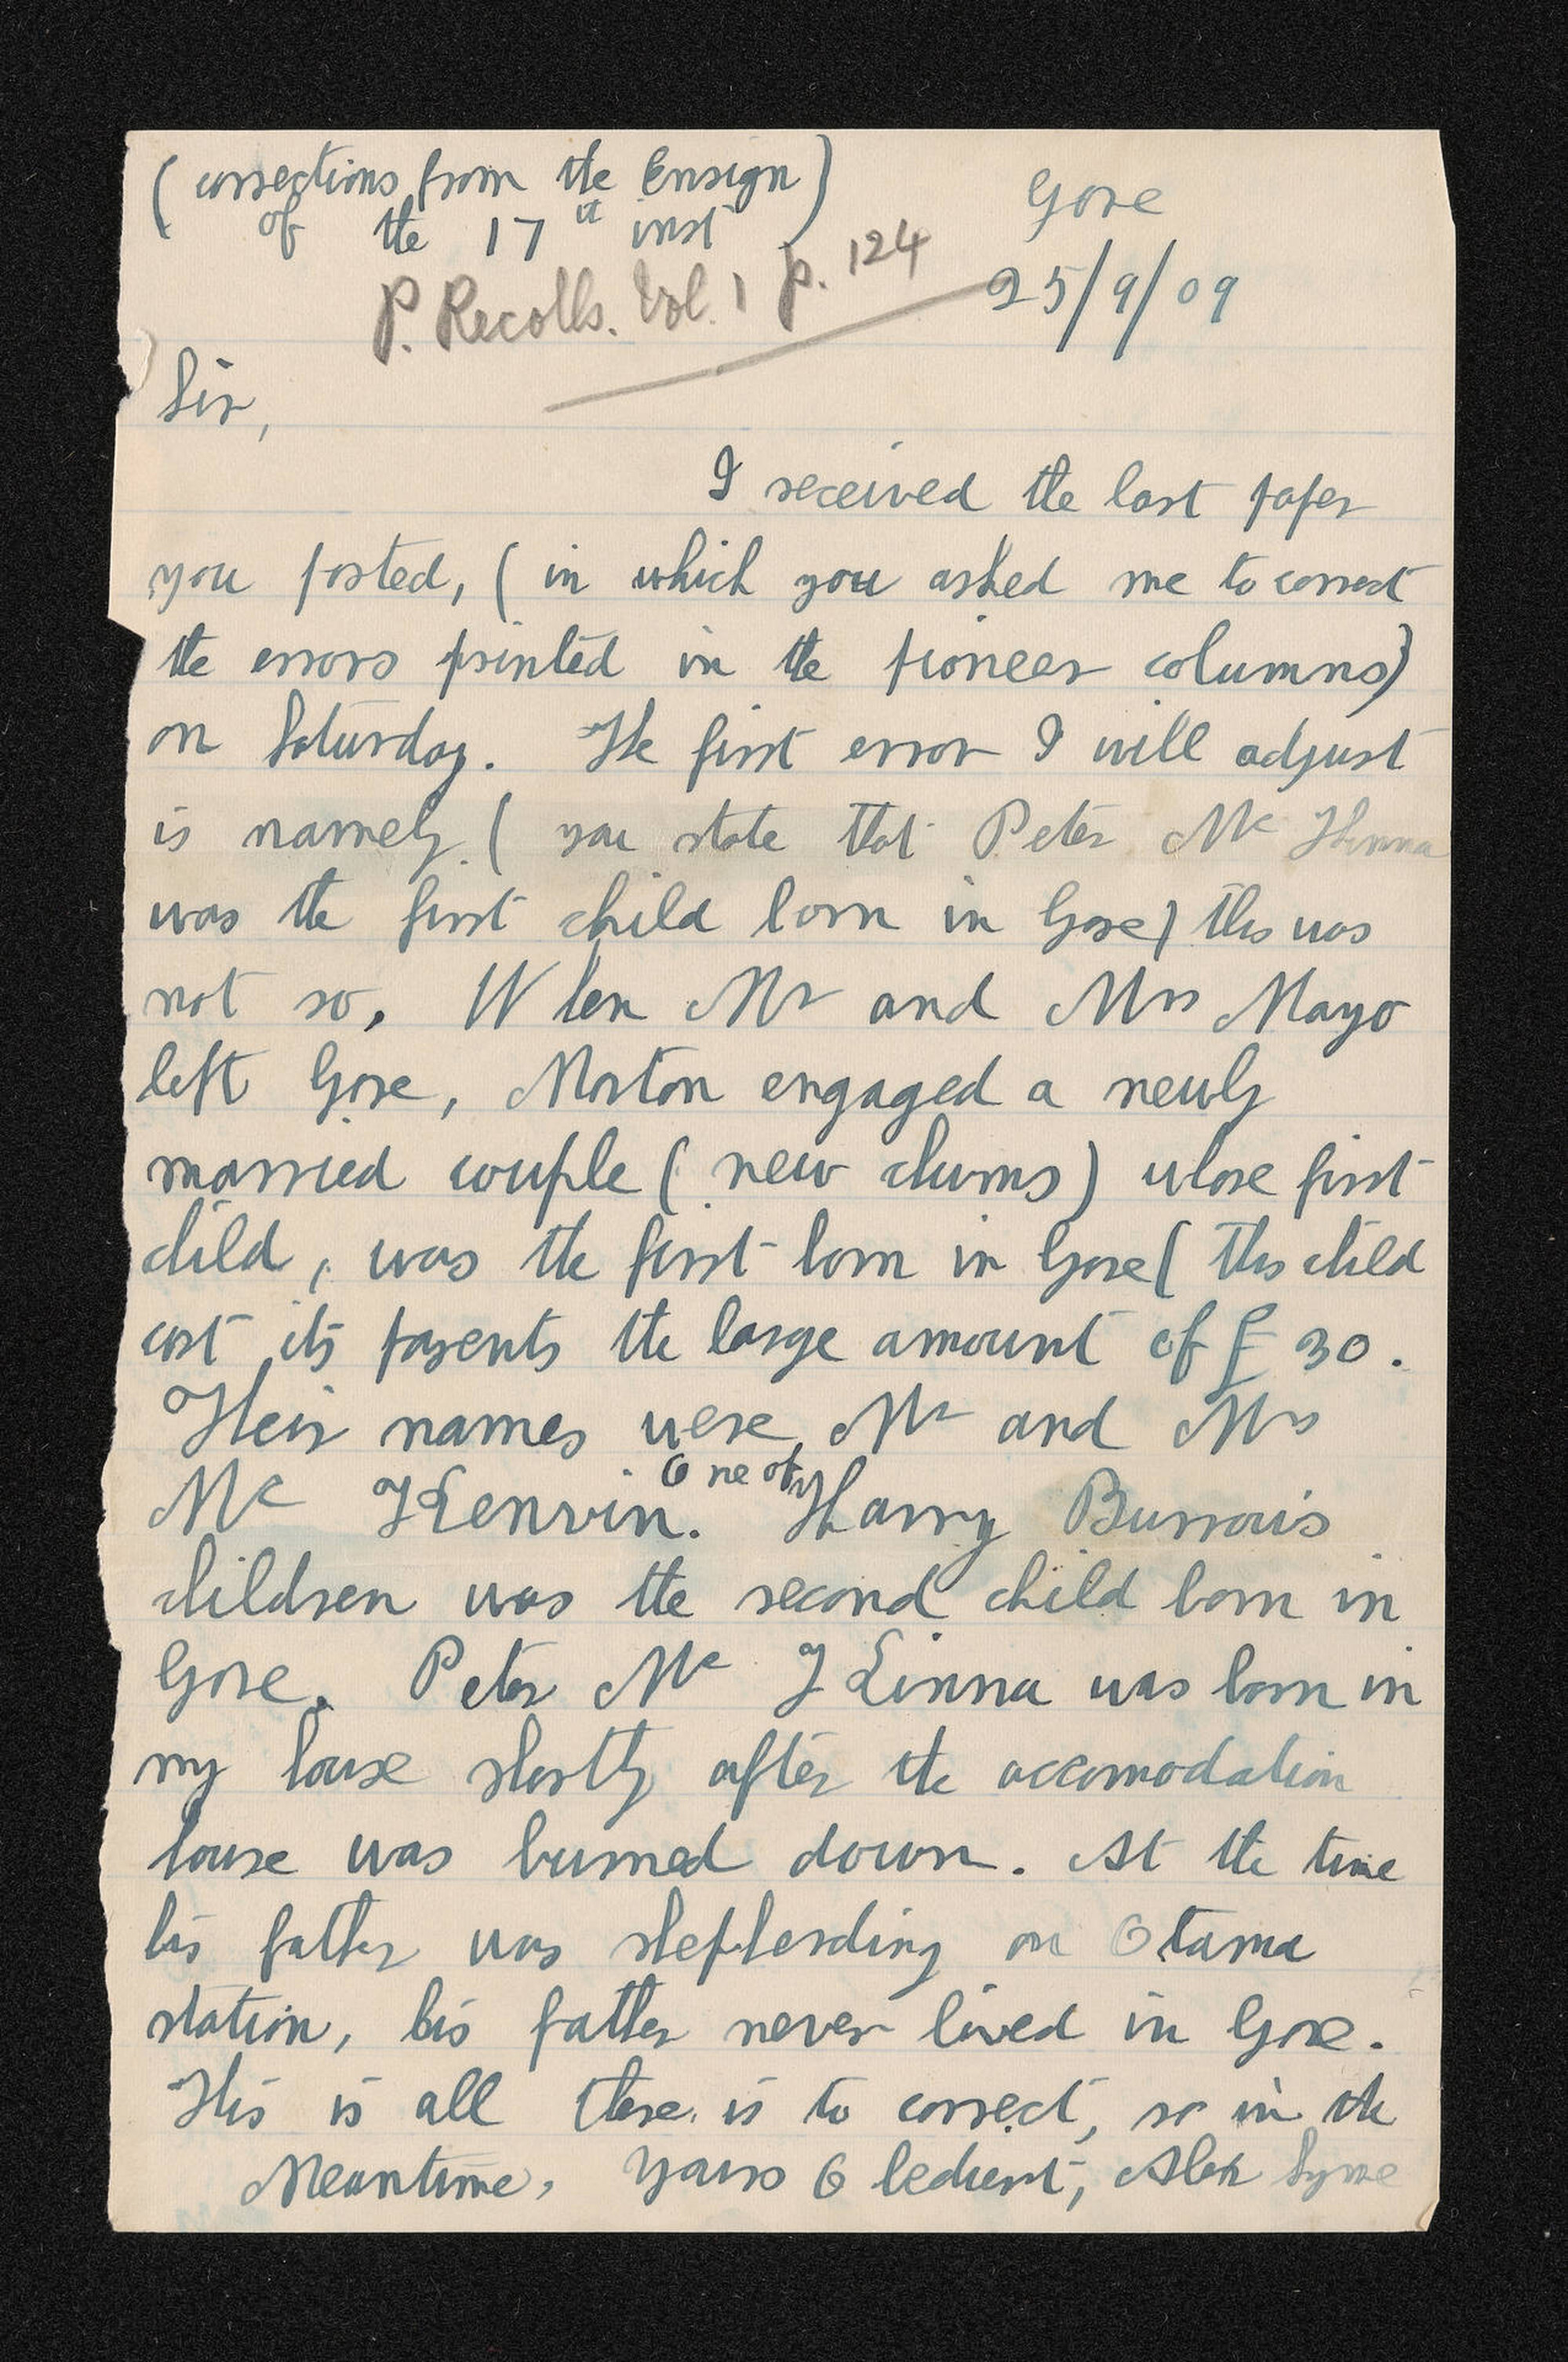 ( corrections from the Ensign )
of the 17th inst
Gore
P. Recolls. Vol. 1 p. 124
25/9/09
Sir,
I received the last paper
you posted, ( in which you asked me to correct
the errors printed in the pioneer columns)
on Saturday. The first error I will adjust
is namely ( you state that Peter Mc Kinna
was the first child born in Gore) this was
not so. When Mr and Mrs Mayo
left Gore, Morton engaged a newly
married couple ( new chums) whose first
child, was the first born in Gore ( this child
cost its parents the large amount of £ 30.
Their names were, Mr and Mrs
Mc Kenvin. One of Harry Burrows
children was the second child born in
Gore. Peter Mc Kinna was born in
my house shortly after the accomodation
house was burned down. At the time
his father was shepherding on Otama
station, his father never lived in Gore.
This is all there is to correct, so in the
Meantime, Yours Obedient, Alex Syme